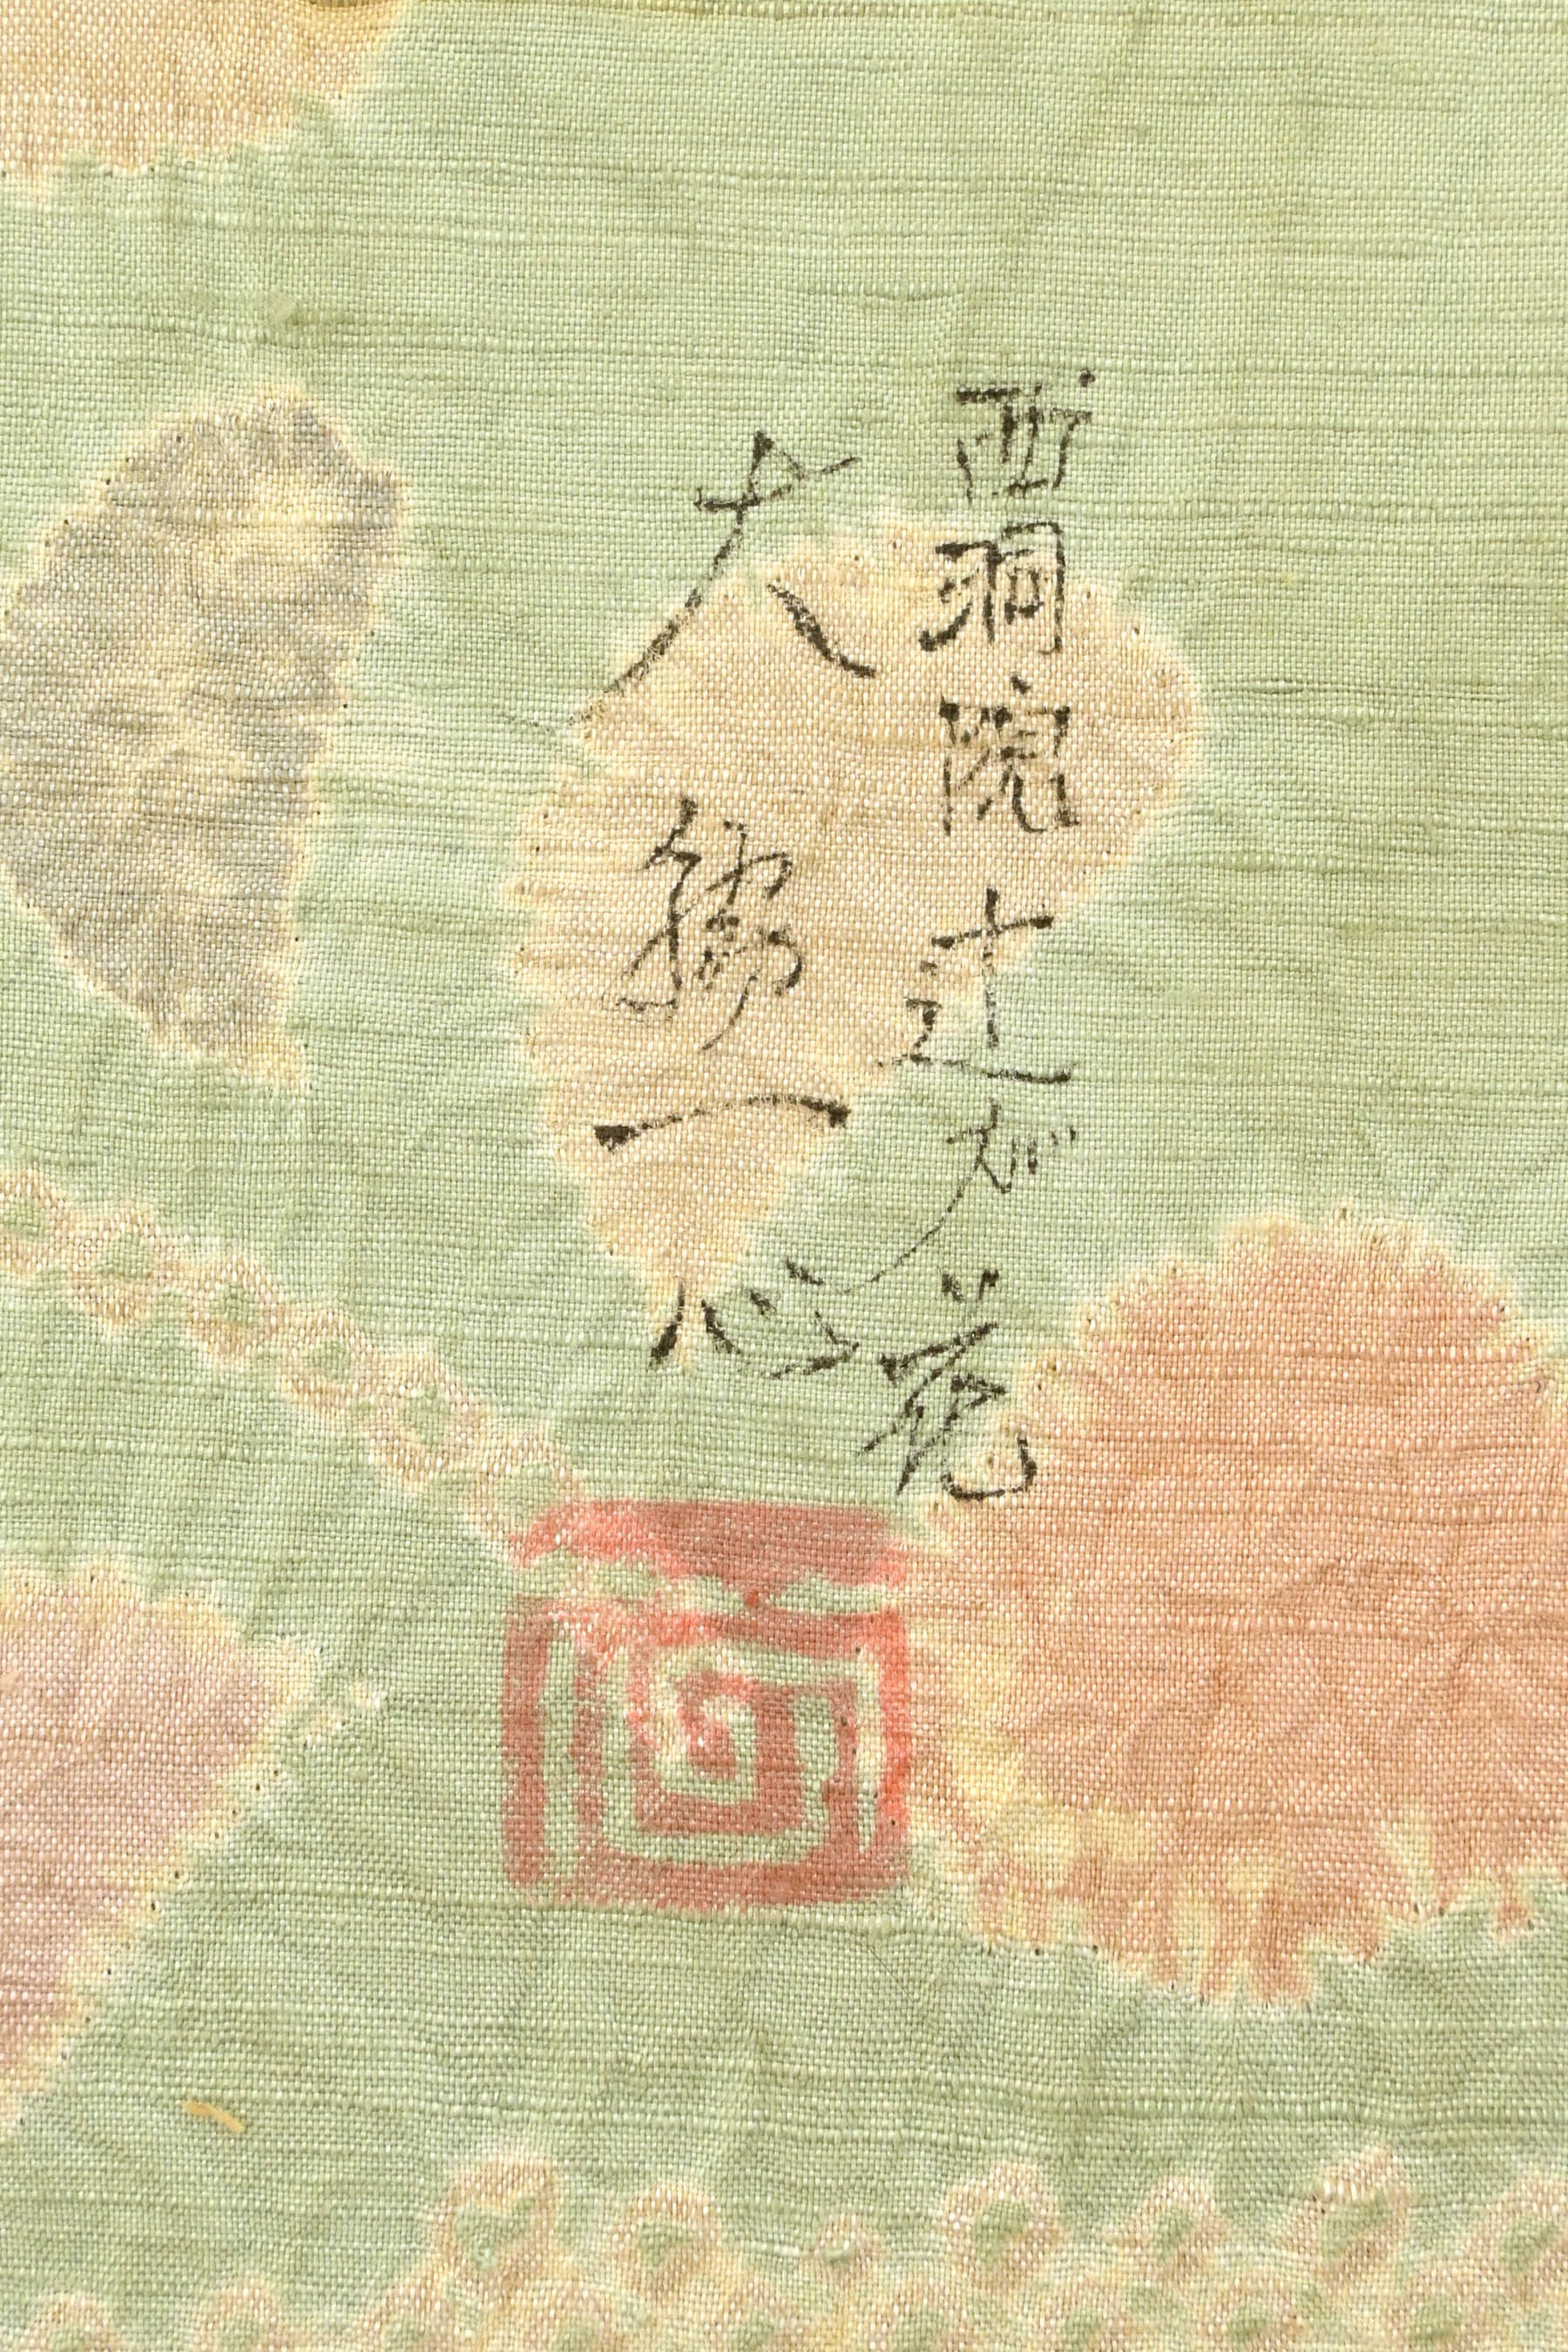 西洞院辻が花
大脇一心